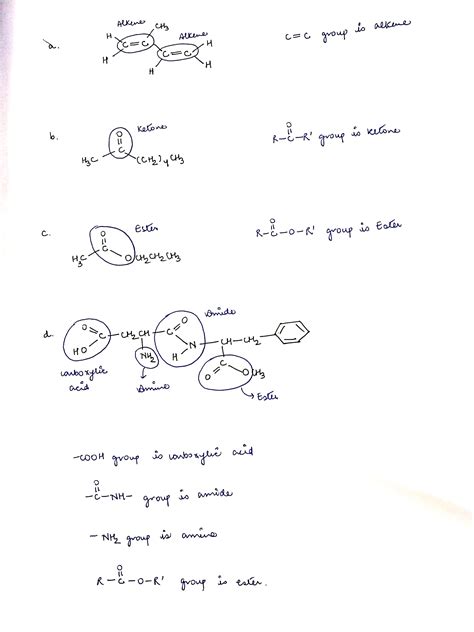 a.
Alkene
Alkene
H
CH₃
C=C
C=C
H
H
H
H
C=C group is alkene
b.
Ketone
O
||
C
H₃C
(CH₂)₄CH₃
O
||
R-C-R' group is ketone
c.
Ester
O
||
C
H₃C
OCH₂CH₂CH₃
O
||
R-C-O-R' group is Ester
d.
Amide
O
C
HO
CH₂CH
C
O
NH₂
H
N
CH-CH₂
C
O
OCH₃
carboxylic
acid
Amino
Ester
-COOH group is carboxylic acid
O
||
-C-NH- group is amide
-NH₂ group is amino
O
||
R-C-O-R' group is ester.